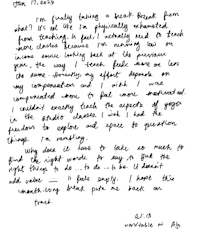 Jan 17, 2024
I'm finally taking a break from
what? It's not like I'm physically exhausted
from teaching. In fact, I actually need to teach
more classes because I'm running low on
income source looking back at the previous
year. The way I teach feels more or less
the same. Honestly, my effort depends on
my compensation and I wish I was
compensated more to feel more motivated.
I couldn't exactly teach the aspects of yoga
in the studio classes I wish I had the
freedom to explore and space to question
things. I'm venting.
Why does it have to take so much to
find the right words to say to find the
right things to do ... to do .. to be. It doesn't
add value — it feels empty. I hope this
month-long break puts me back on
track.
21:13